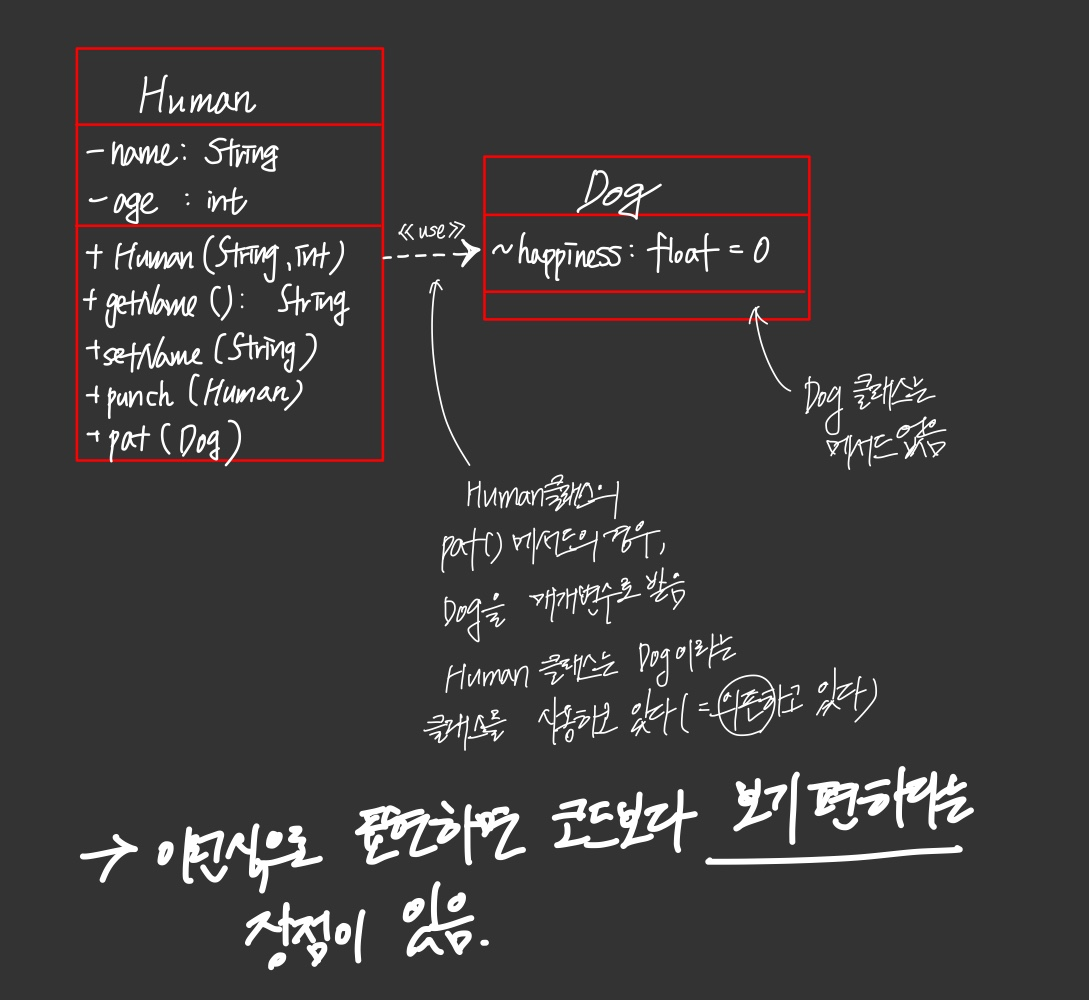 Human
- name: String
- age : int
+ Human (String, int)
+ getName (): String
+ setName (String)
+ punch (Human)
+ pat (Dog)
≪use≫
Dog
~ happiness: float = 0
Dog 클래스는
메서드 없음
Human클래스의
pat() 메서드의 경우,
Dog을 매개변수로 받음
Human 클래스는 Dog이라는
클래스를 사용하고 있다 (= 의존하고 있다)
→ 이런식으로 표현하면 코드보다 보기 편하다는
장점이 있음.